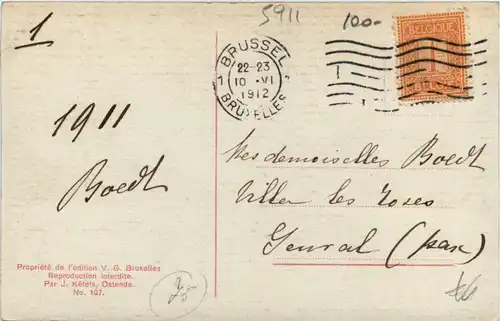 1
5911
100-
BRUSSEL
22-23
10 -VI
1912
BRUXELLES
BELGIQUE
1911
Boedt
Mesdemoiselles Boedt
Villa les Roses
Genval (
Propriété de l'édition V. G. Bruxelles
Reproduction interdite.
Par J. Kétels, Ostende.
No. 107.